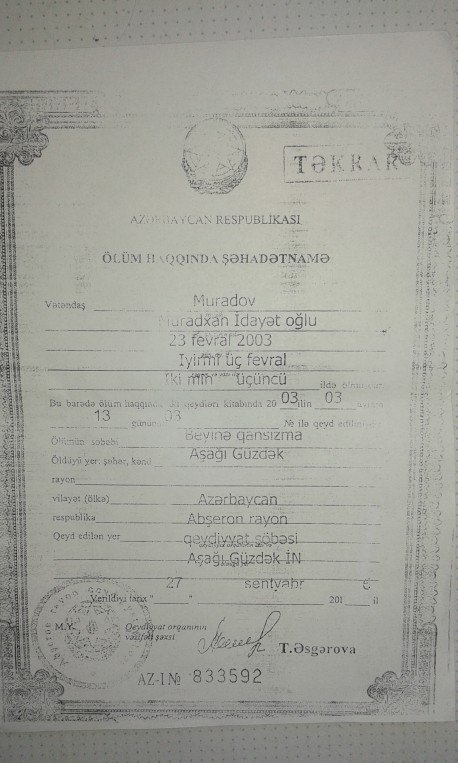 TƏKRAR
AZƏRBAYCAN RESPUBLİKASI
ÖLÜM HAQQINDA ŞƏHADƏTNAMƏ
Vətəndaş Muradov
Muradxan İdayət oğlu
23 fevral 2003
İyirmi üç fevral
İki min üçüncü ildə
Bu barədə ölüm haqqında kitabında 20 03 ilin 03 ayının
13 günündə 03 № ilə qeyd edilmişdir
Ölümün səbəbi Beyinə qansızma
Öldüyü yer: şəhər, kənd Aşağı Güzdək
rayon
vilayət (ölkə) Azərbaycan
respublika Abşeron rayon
Qeyd edilən yer qeydiyyat şöbəsi
Aşağı Güzdək İN
27 sentyabr
Verildiyi tarix " " 201 il
M.Y. Qeydiyyat orqanının
vəzifəli şəxsi
T.Əsgərova
AZ-I № 833592